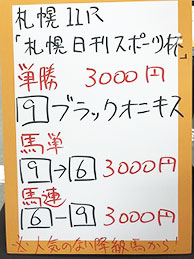 札幌11R
「札幌日刊スポーツ杯」
単勝 3000円
9 ブラックオニキス
馬単
9→6 3000円
馬連
6-9 3000円
※人気のない降級馬から!